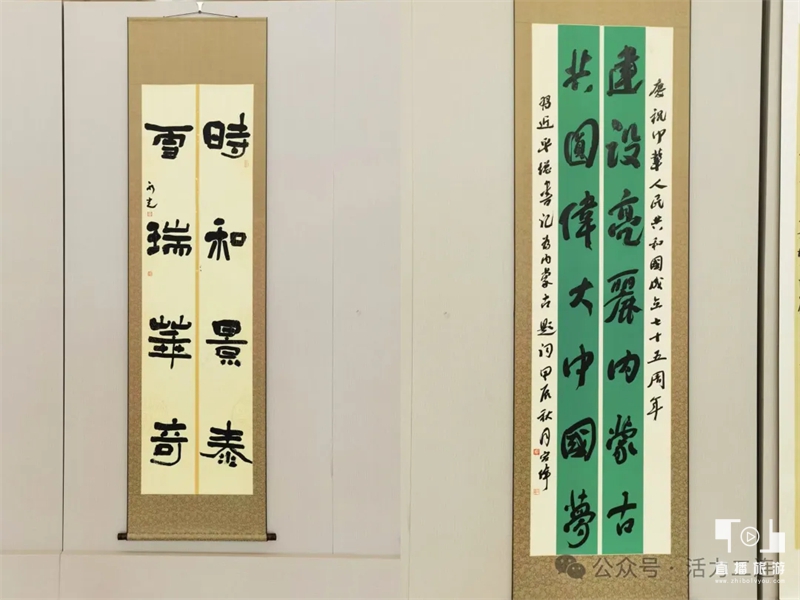 時和景泰
雪瑞華奇
慶祝中華人民共和國成立七十五周年
建設亮麗内蒙古
共圓偉大中國夢
習近平總書記為内蒙古題詞 甲辰秋月
公众号·活力二
直播旅游
www.zhibolvyou.com